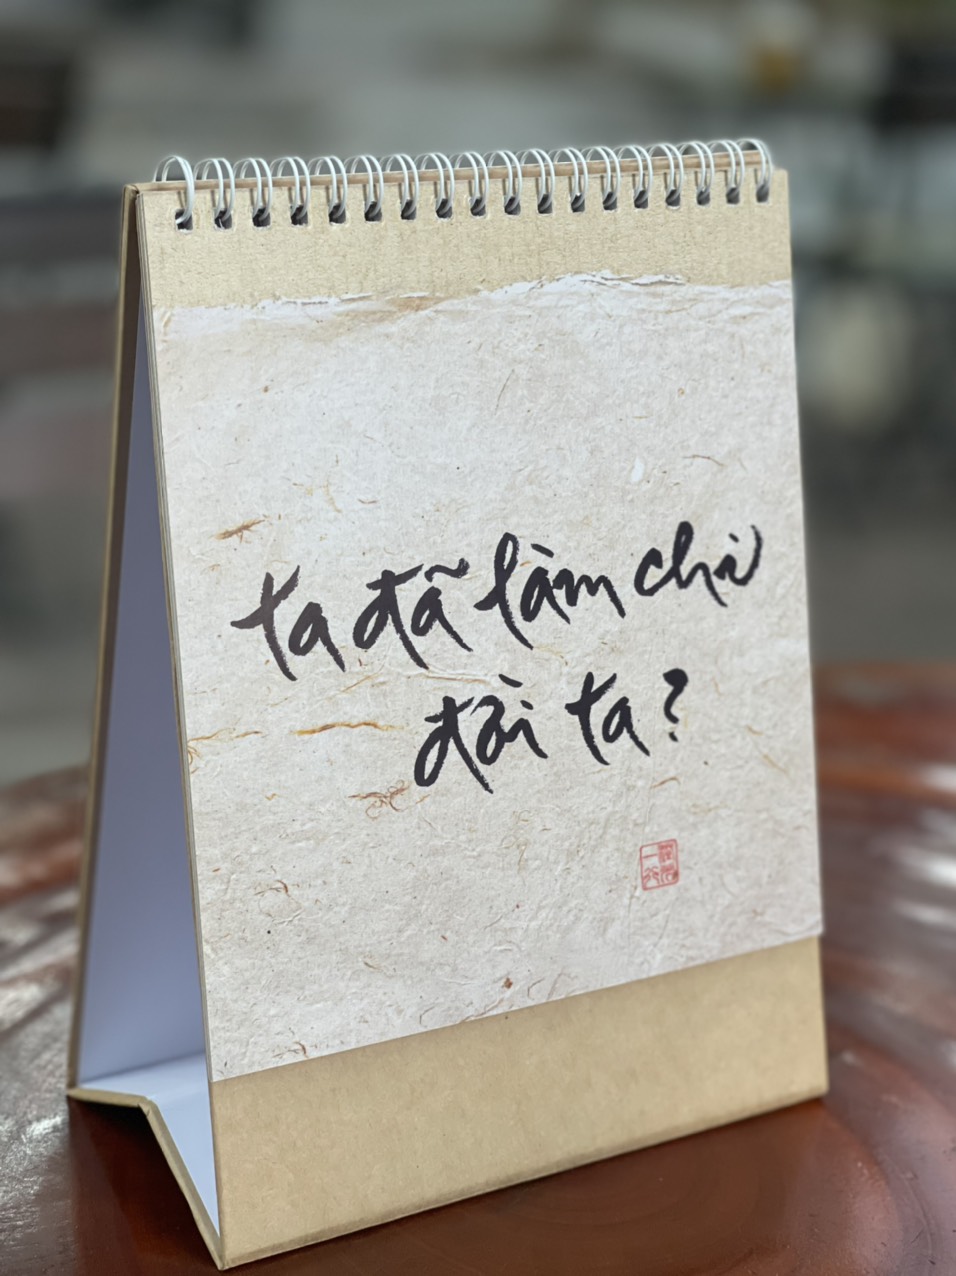 ta đã làm chi
đời ta?